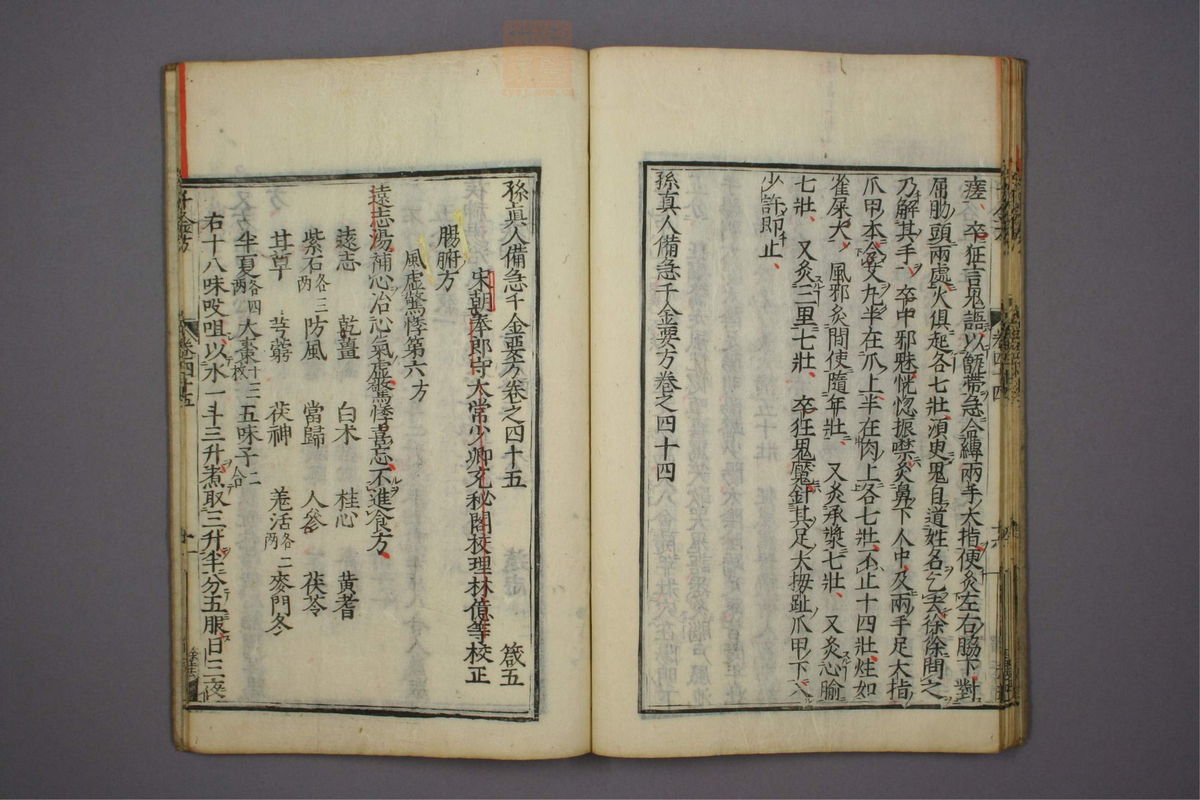 瘥、卒狂言鬼語以甑帶急合縛兩手大指便灸左右脇下對
屈肋頭兩處火俱起各七壯須臾鬼自道姓名乞去徐徐問之
乃解其手、卒中邪魅恍惚振噤灸鼻下人中及兩手足大指
爪甲本令艾丸半在爪上半在肉上各七壯不止十四壯炷如
雀屎大、風邪灸間使隨年壯、又灸承漿七壯、又灸心腧
七壯、又灸三里七壯、卒狂鬼魘針其足大拇趾爪甲下入
少許即止、
孫真人備急千金要方卷之四十四
孫真人備急千金要方卷之四十五
箴五
宋朝奉郎守太常少卿充秘閣校理林億等校正
腸腑方
風虛驚悸第六方
遠志湯補心治心氣虛驚悸喜忘不進食方
遠志 乾薑 白朮 桂心 黃耆
紫石各三兩 防風 當歸 人參 茯苓
甘草 芎藭 茯神 羌活各二兩 麥門冬
半夏各四兩 大棗十二枚 五味子二合
右十八味㕮咀以水一斗三升煮取三升半分五服日三夜
千金方
卷四十五
卷四十四